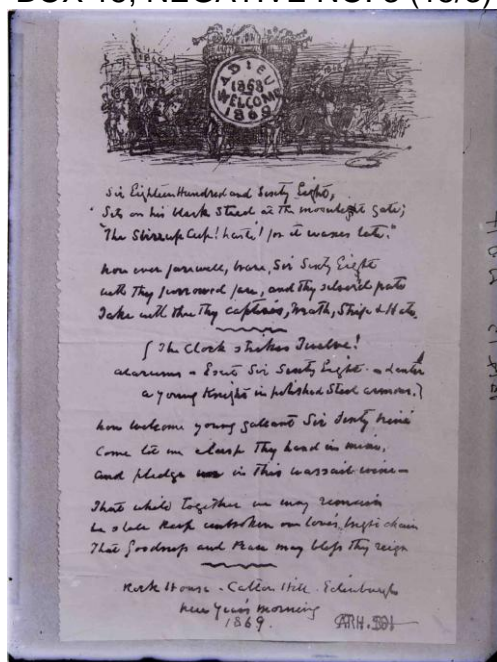 BOX 13, NEGATIVE NO. 3 (13/3)
ADIEU
1868
WELCOME
1869
Sir Eighteen Hundred and Sixty Eight,
Sits on his black Steed at the moonlight gate;
"The Stirrup Cup! haste! for it waxes late."
now ever farewell, brave, Sir Sixty Eight
with thy furrowed face, and thy silvered pate
Take with thee thy captives, Wrath, Strife & Hate.
{ The Clock strikes Twelve!
alarums - Exit Sir Sixty Eight - & enter
a young Knight in polished Steel armour. }
now welcome young gallant Sir Sixty nine
Come let me clasp thy hand in mine,
and pledge in this wassail wine -
That while together we may remain
we shall keep unbroken our love's bright chain
That Goodness and Peace may bless thy reign
Rock House - Calton Hill - Edinburgh
new Year's morning
1869.
ARH. 581